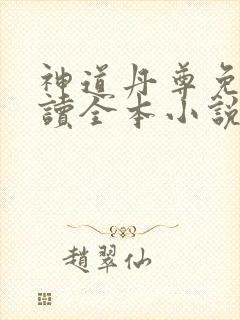 神道丹尊免
讀全本小說
趙翠仙